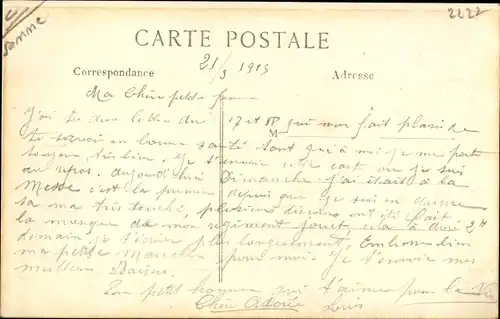 Somme
2222
CARTE POSTALE
21/3 1915
Correspondance Adresse
Ma Chère petite femme
J'ai tes deux lettres du 17 et 18 qui mon fait plaisir de
M
te savoir en bonne santé tant qu'à moi je me porte
toujour très bien. Je t'envoie cette cart ou je suis
au repos. aujourdui Dimanche j'ai était à la
Messe c'est la premier depuis que je suis en guerre
sa ma très touché, plusieurs discours ont été fait.
la musque de mon regiment jouet, cela à duré 2H
demain je t'écrirai plus longuement, Embrasse bien
ma petite Marcelle pour moi. Je t'envoie mes
meilleurs Baisers.
Ton petit homme qui t'aime pour la Vie
Chère Adorée Louis